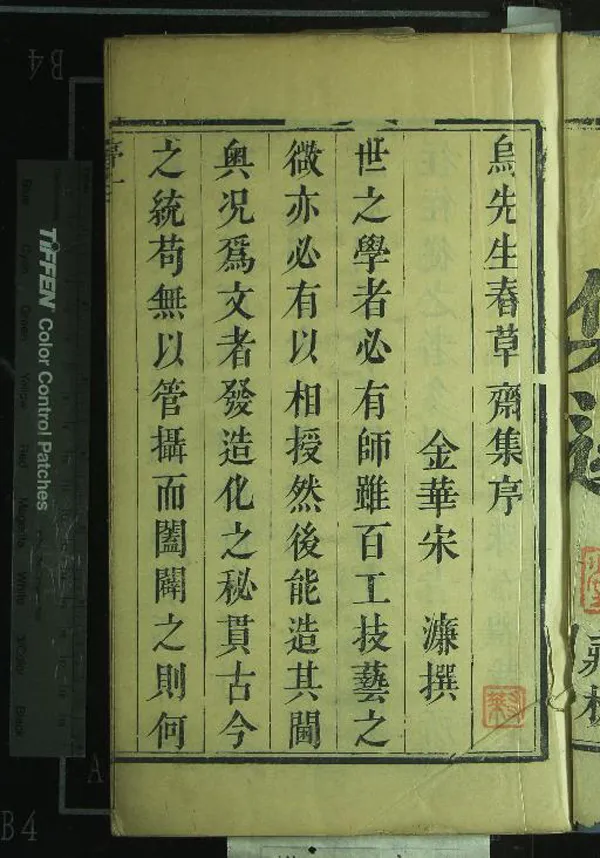 烏先生春草齋集序
金華宋　濂撰
世之學者必有師雖百工技藝之
微亦必有以相授然後能造其閫
奥况爲文者發造化之秘貫古今
之統苟無以管攝而闔闢之則何
序一
TIFFEN Color Control Patches
Blue
Cyan
Green
Yellow
Red
Magenta
White
3/Color
Black
B4
A
B4